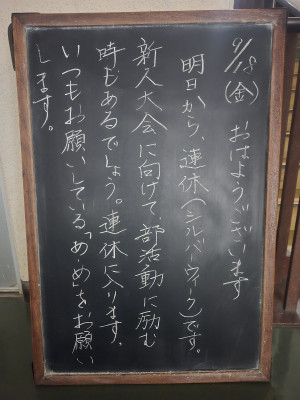 9/18(金) おはようございます
明日から、連休(シルバーウィーク)です。
新人大会に向けて、部活動に励む
時もあるでしょう。連休に入ります、
いつもお願いしている「め・め」をお願い
します。